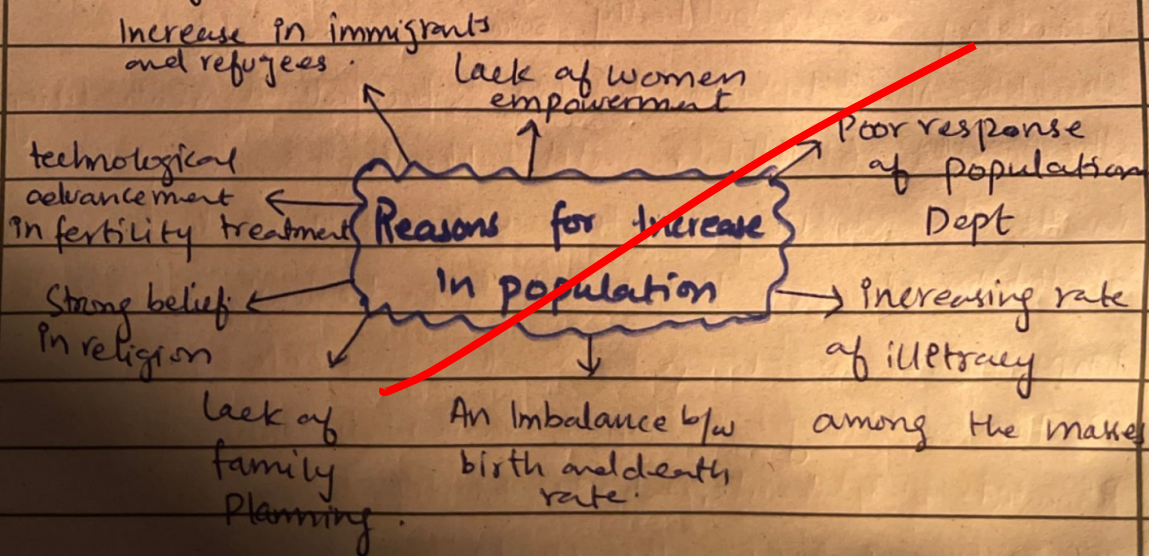 Increase in immigrants
and refugees.
Lack of women
empowerment
Poor response
of population
Dept
technological
advancement
in fertility treatment
Reasons for Increase
In population
Strong belief
in religion
increasing rate
of illetracy
among the masses
Lack of
family
Planning.
An Imbalance b/w
birth and death
rate.